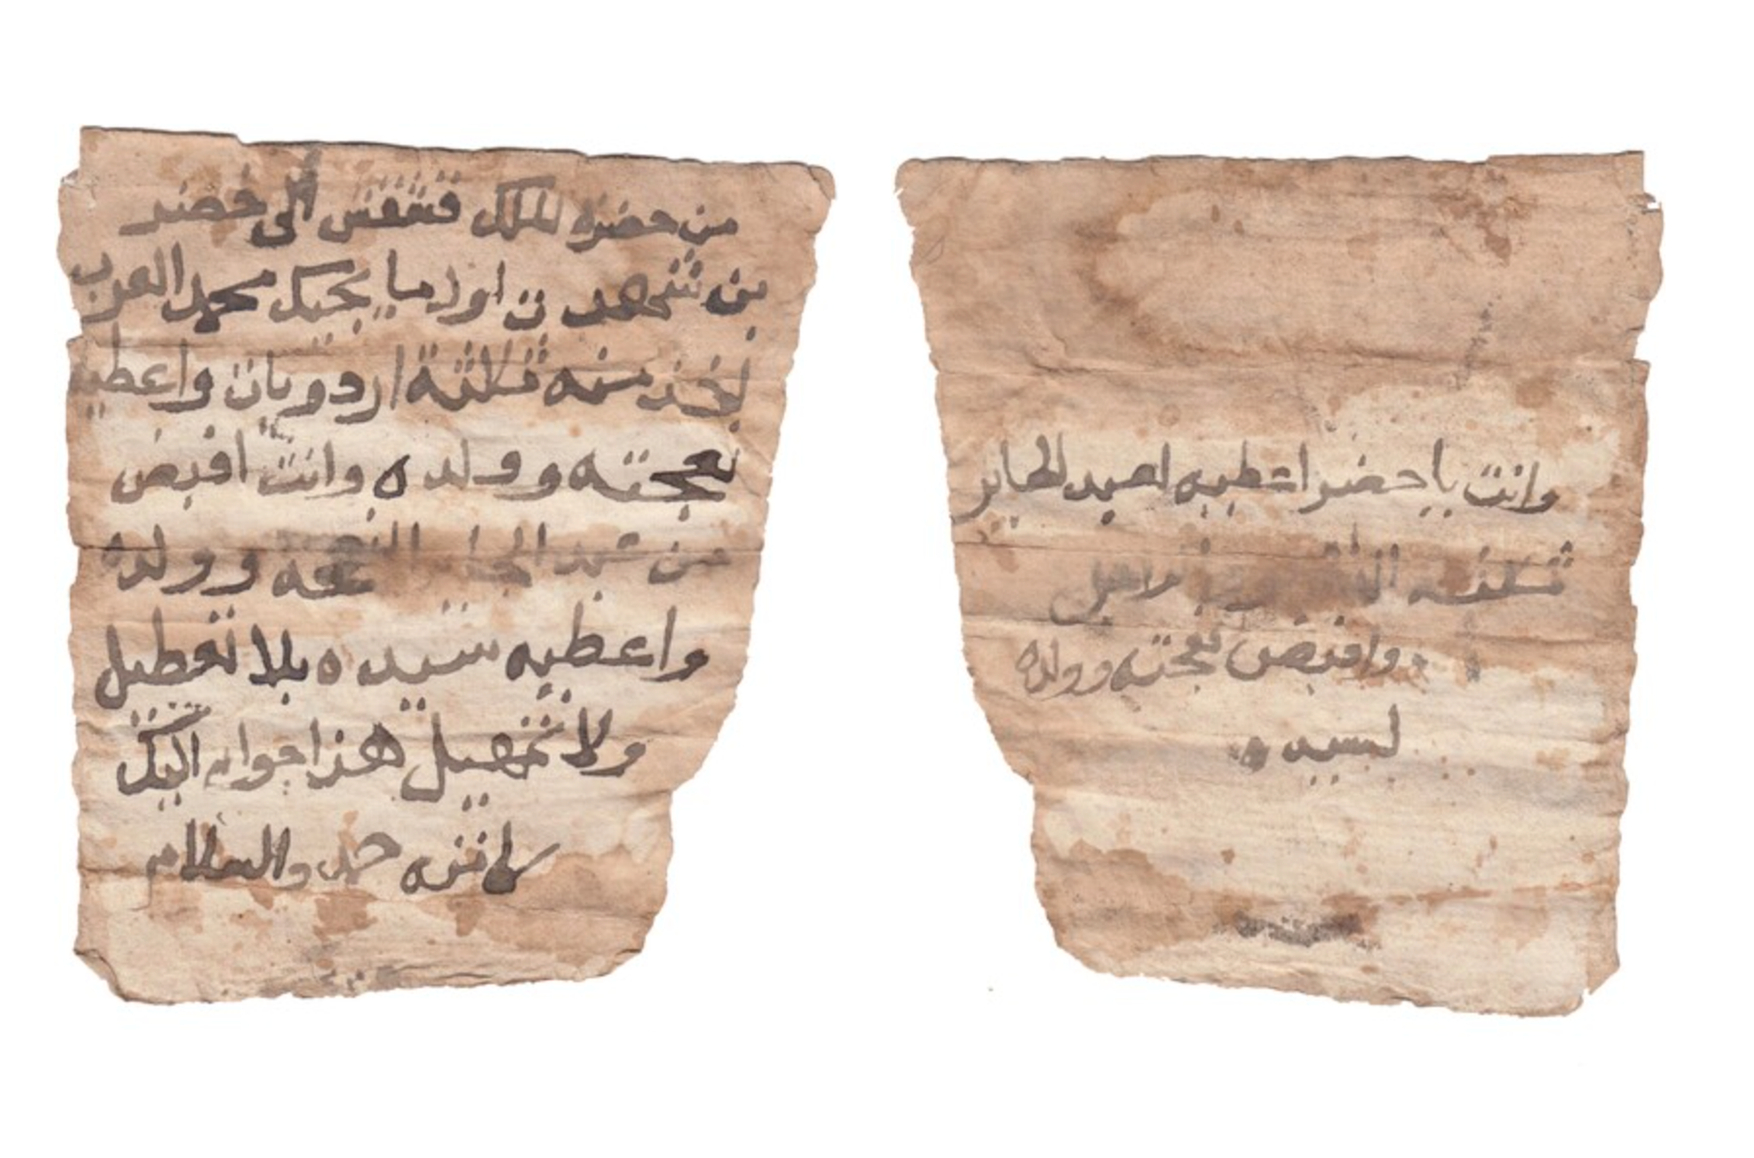 من حضره الملك قشقش الى خضر
بن شهد ن اول ما يجيك محمد العرب
لخذ منه ثلاثة اردويات واعطيه
نعجته وولده وانت اقبض
من عبد الجابر النعجه وولده
واعطيه سيده بلا تعطيل
ولا تمهيل هذا جوابى اليك
كاتبه حمد والسلام
وانت يا خضر اعطيه لعبد الجابر
ثلاثه
واقبض نعجته وولده
لسيده